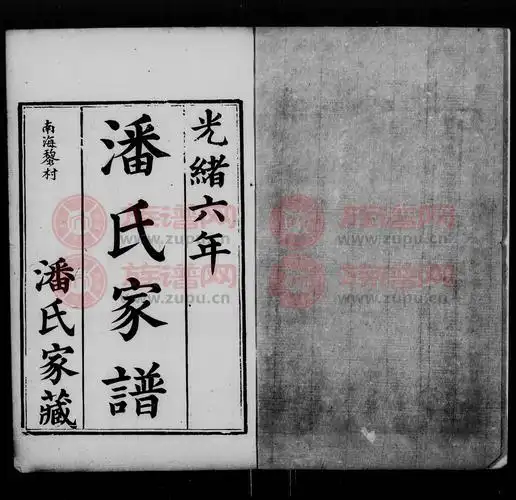 光緒六年
潘氏家譜
南海黎村
潘氏家藏
族谱网
www.zupu.cn
族谱网
www.zupu.cn
族谱网
www.zupu.cn
族谱网
www.zupu.cn